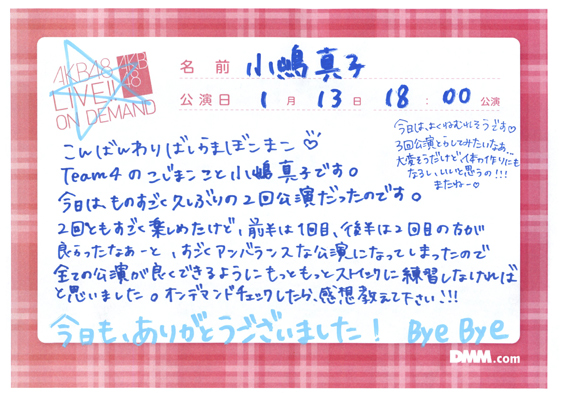 AKB48
LIVE!!
ON DEMAND
AKB
48
名前 小嶋真子
公演日 1月13日 18:00公演
今日は、よくねむれそうです♡
3回公演とらしてみたいなあ...
大変そうだけど、体力作りにも
なるし、いいと思うの!!!
またねー♡
こんばんわりばしかまぼこまこ♡
Team4のこじまここと小嶋真子です。
今日は、ものすごく久しぶりの2回公演だったのです。
2回ともすごく楽しめたけど、前半は1回目、後半は2回目の方が
良かったなあーと、すごくアンバランスな公演になってしまったので
全ての公演が良くできるようにもっともっとストイックに練習しなければ
と思いました。オンデマンドチェックしたら、感想教えて下さい!!!
今日も、ありがとうございました! Bye Bye
DMM.com